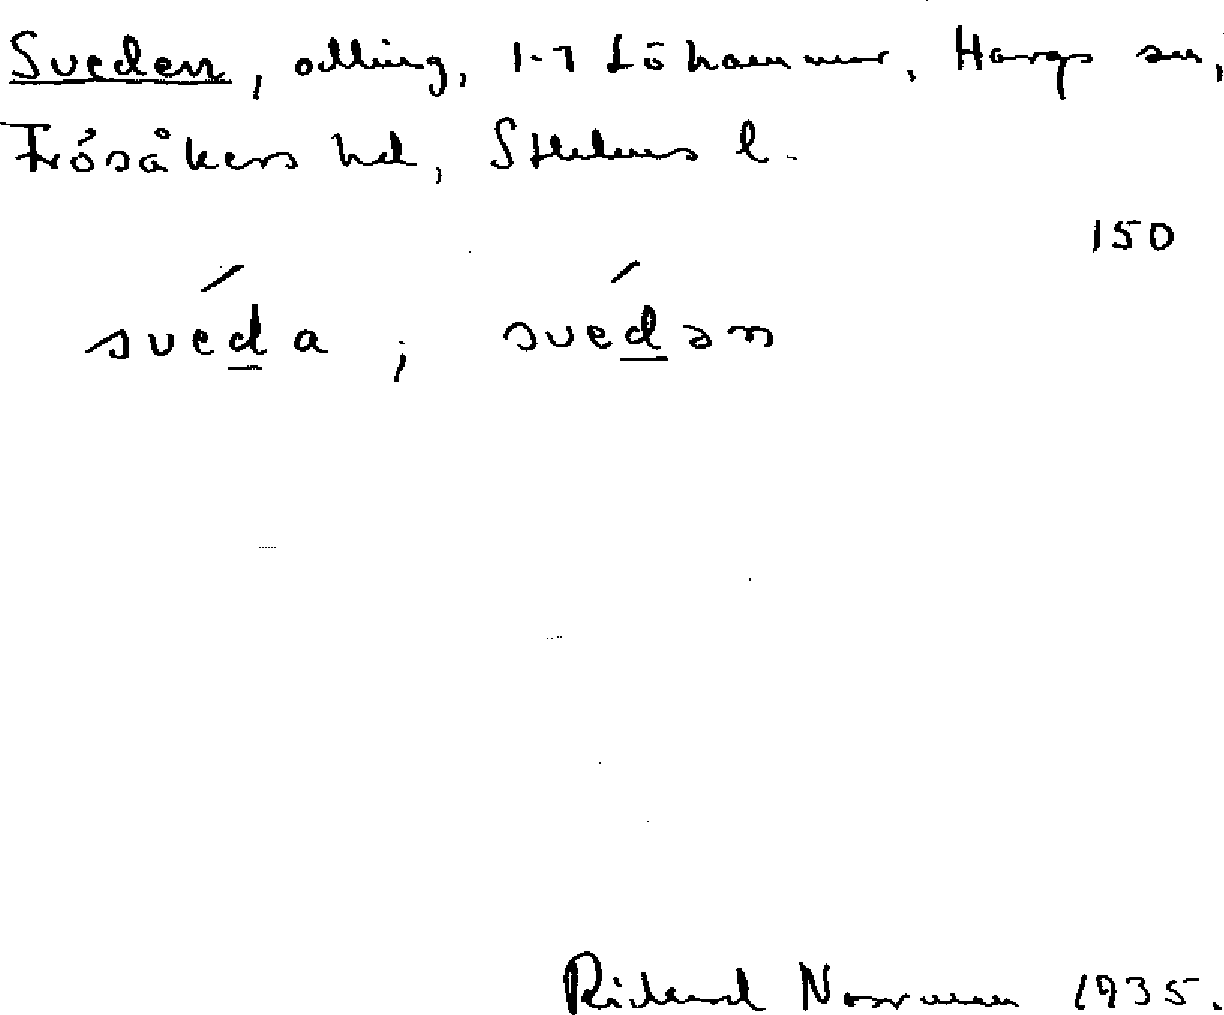 Sveden, odling, 1-7 Löhammar, Hargs sn,
Frösåkers hd, Sthlms l.
150
svéd̲a ; svéd̲ən
Rickard Norrman 1935.